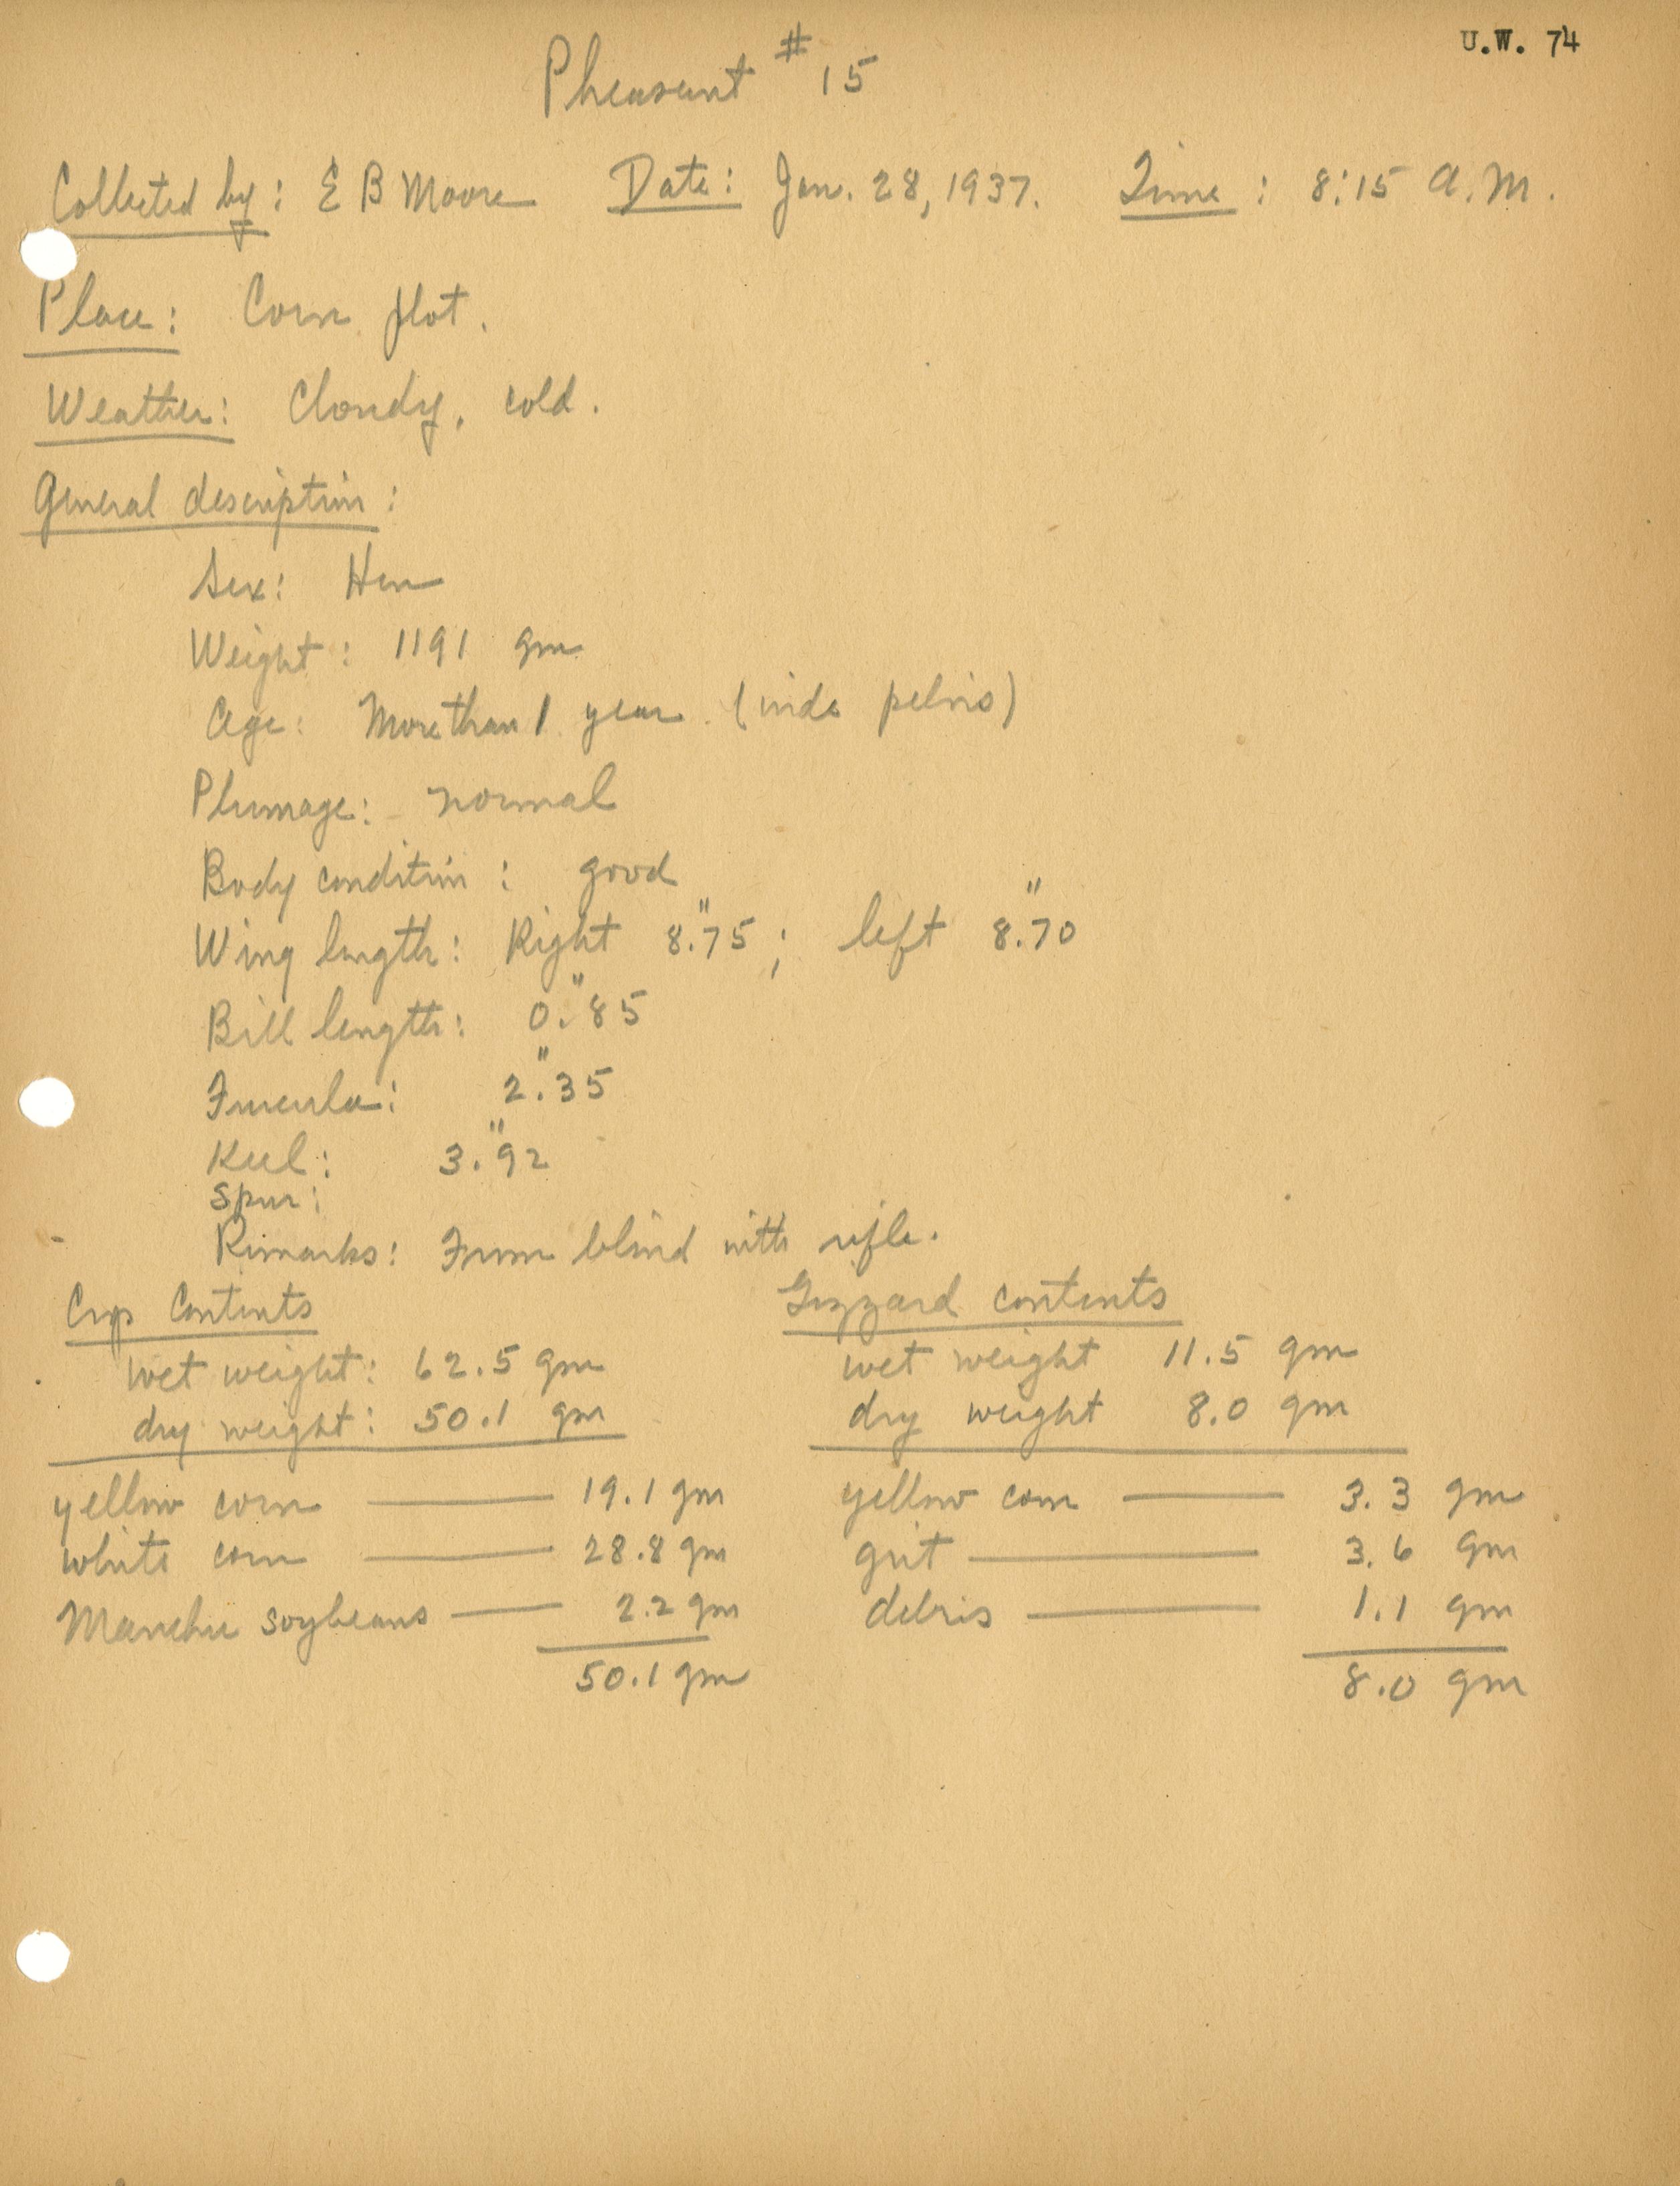 U.W. 74
Pheasant # 15
Collected by: E B Moore Date: Jan. 28, 1937. Time: 8:15 A.M.
Place: Corn plot.
Weather: Cloudy, cold.
General description:
Sex: Hen
Weight: 1191 gm
Age: More than 1 year (wide pelvis)
Plumage: normal
Body condition: good
Wing length: Right 8."75; left 8."70
Bill length: 0."85
Furcula: 2."35
Keel: 3."92
Spur:
Remarks: From blind with rifle.
Crop Contents Gizzard contents
wet weight: 62.5 gm wet weight 11.5 gm
dry weight: 50.1 gm dry weight 8.0 gm
yellow corn — 19.1 gm yellow corn — 3.3 gm
white corn — 28.8 gm grit — 3.6 gm
Manchu soybeans — 2.2 gm debris — 1.1 gm
50.1 gm 8.0 gm